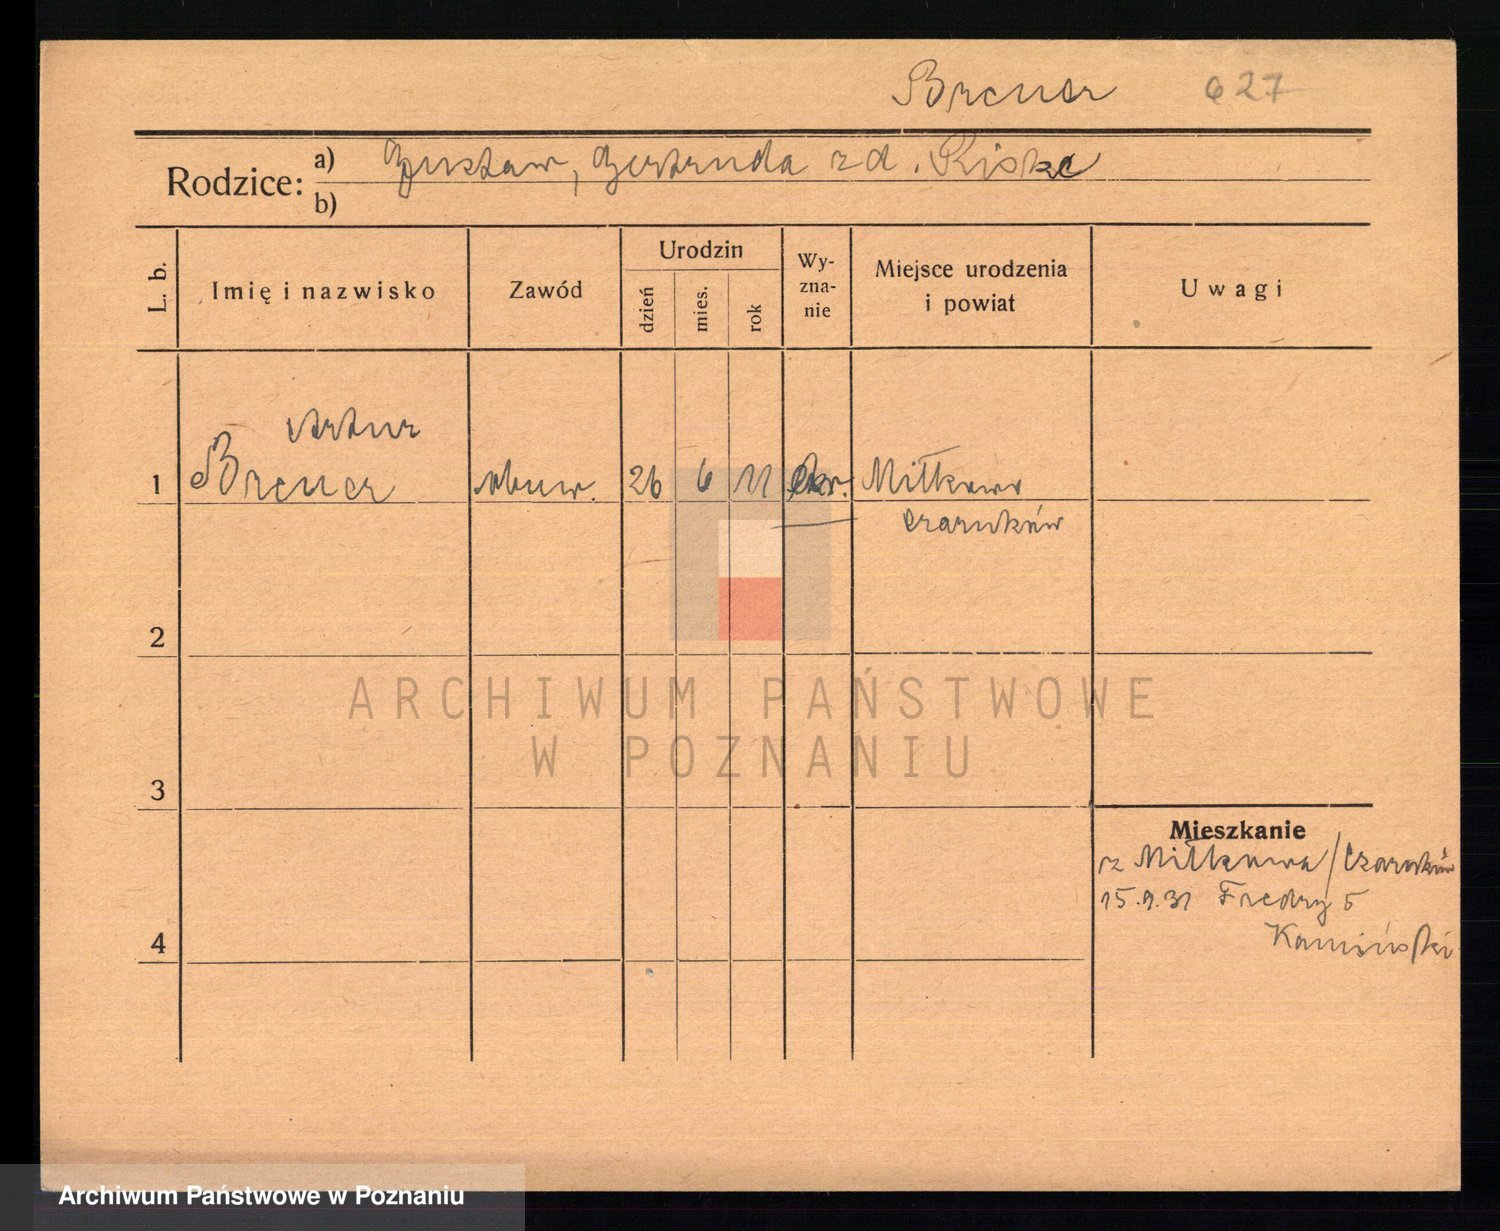 Brener 627
Rodzice: a) Gustaw, Gertruda z d. Riske
b)
L. b. Imię i nazwisko Zawód Urodzin dzień mies. rok Wy-zna-nie Miejsce urodzenia i powiat Uwagi
Artur
1 Brener 26 6 11 Miłkowo
Czarnków
2
ARCHIWUM PAŃSTWOWE
W POZNANIU
3
Mieszkanie
z Miłkowa / Czarnków
15.9.31 Fredry 5
4 Kamiński
Archiwum Państwowe w Poznaniu